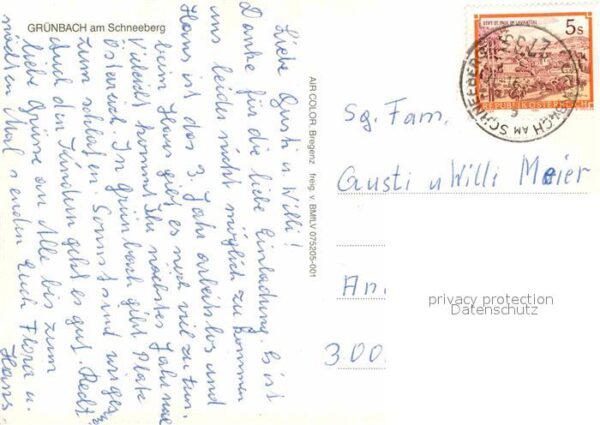 GRÜNBACH am Schneeberg
Liebe Gusti u. Willi!
Danke für die liebe Einladung. Es ist
uns leider nicht möglich zu kommen
Hans ist das 3. Jahr arbeitslos und
beim Haus gibt es noch viel zu tun.
Vielleicht kommt Ihr nächstes Jahr nach
Österreich. In Grünbach gibt Platz
zum schlafen. Sonst sind wir ges.
Auch den Kindern geht es gut.
liebe Grüsse an Alle bis zum
nächsten Mal senden Euch Flora u.
Hans
AIR COLOR, Bregenz freig. v. BMILV 075205-001
STIFT ST. PAUL IM LAVANTTAL
5s
REPUBLIK ÖSTERREICH
2733
GRÜNBACH AM SCHNEEBERG
Sg. Fam.
Gusti u Willi Maier
An
300
privacy protection
Datenschutz